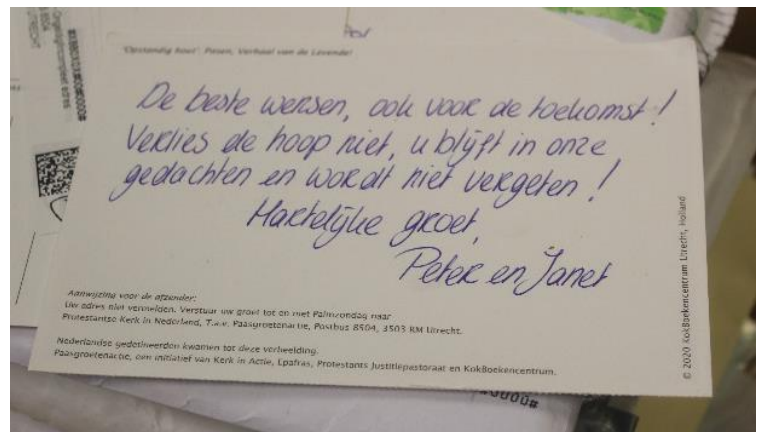 'Opstandig hout' Pasen, Verhaal van de Levende!
De beste wensen, ook voor de toekomst!
Verlies de hoop niet, u blijft in onze
gedachten en wordt niet vergeten!
Hartelijke groet,
Peter en Janet
Aanwijzing voor de afzender:
Uw adres niet vermelden. Verstuur uw groet tot en met Palmzondag naar
Protestantse Kerk in Nederland, T.a.v. Paasgroetenactie, Postbus 8504, 3503 RM Utrecht.
Nederlandse gedetineerden kwamen tot deze verbeelding.
Paasgroetenactie, een initiatief van Kerk in Actie, Epafras, Protestants Justitiepastoraat en KokBoekencentrum.
© 2020 KokBoekencentrum Utrecht, Holland